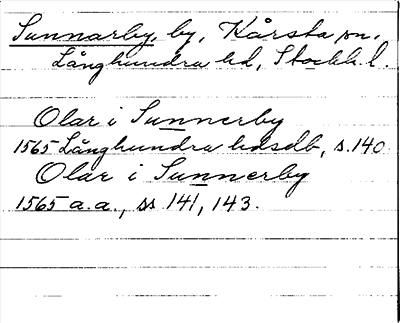 Sunnarby, by, Kårsta sn,
Långhundra hd, Stockh. l.
Olar i Sunnerby
1565 Långhundra hdsdb, s. 140
Olar i Sunnerby
1565 a.a., ss 141, 143.